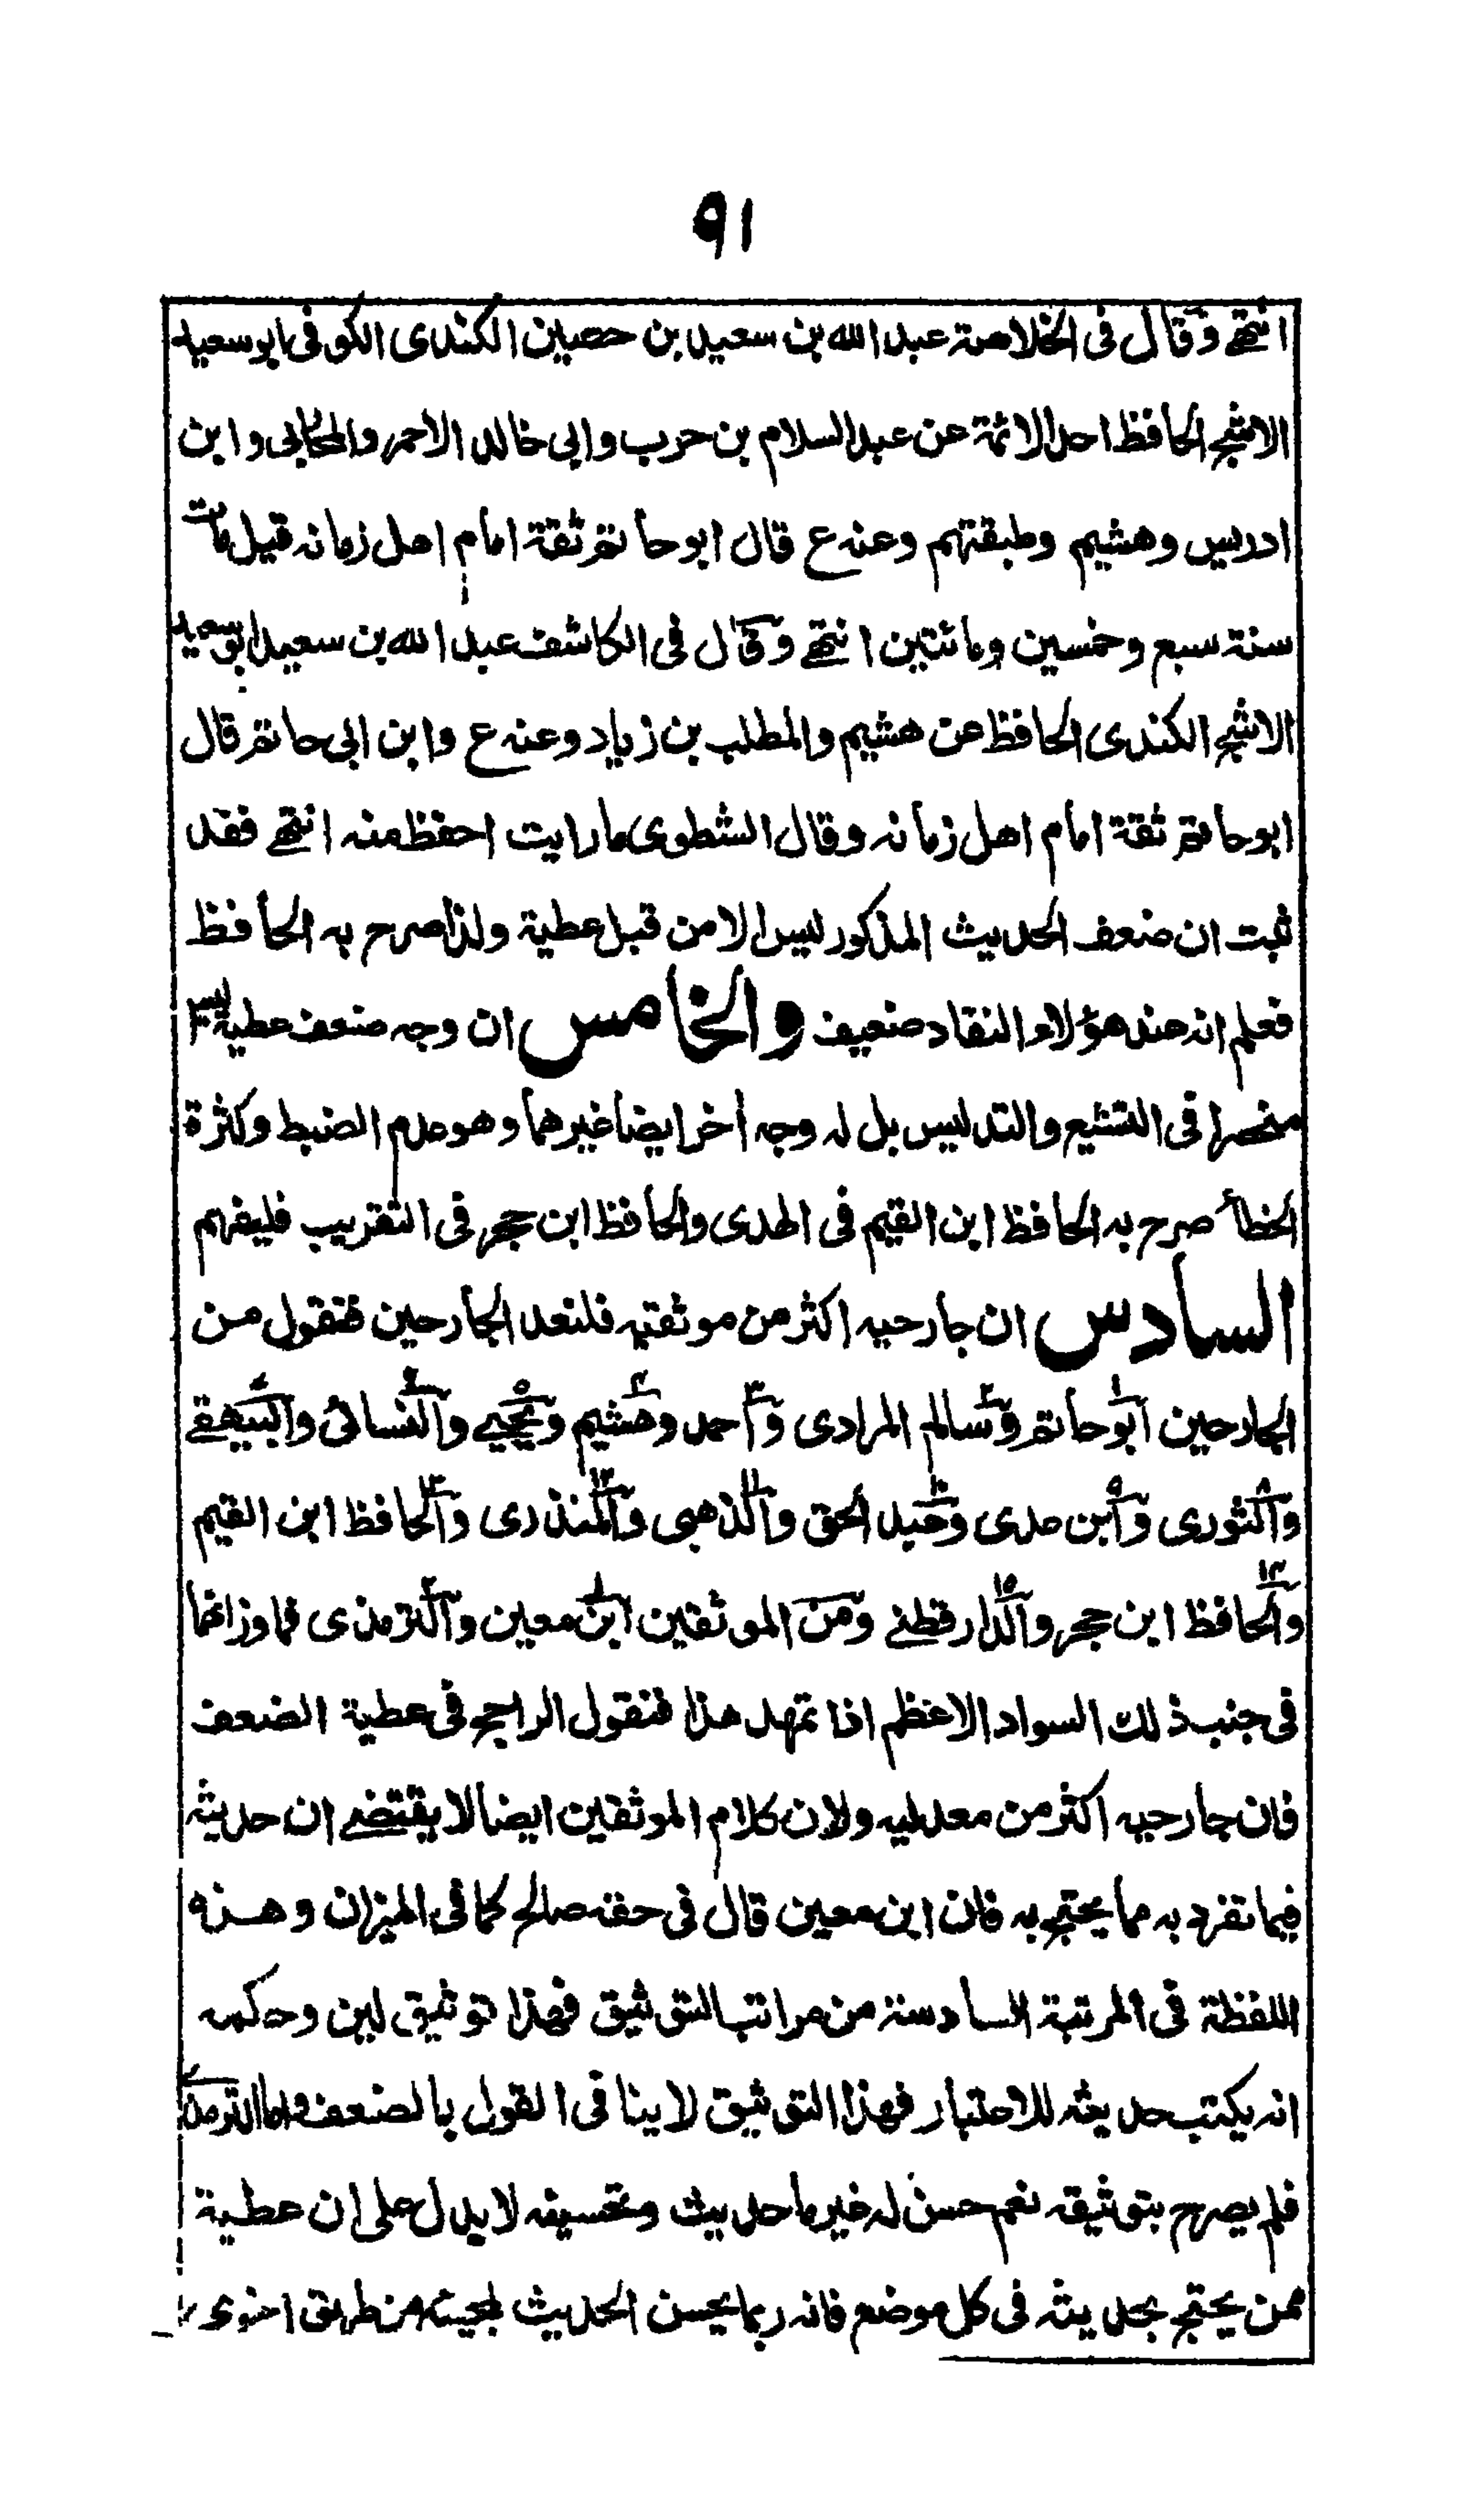 ٩١
انتهى وقال فى الخلاصة عبد الله بن سعيد بن حصين الكندى الكوفى ابو سعيد
الاشج الحافظ احد الائمة عن عبد السلام بن حرب وابى خالد الاحمر والمحاربى وابن
ادريس وهشيم وطبقتهم وعنه ع قال ابو حاتم ثقة امام اهل زمانه قيل مات
سنة سبع وخمسين ومائتين انتهى وقال فى الكاشف عبد الله بن سعيد ابو سعيد
الاشج الكندى الحافظ عن هشيم والمطلب بن زياد وعنه ع وابن ابى حاتم قال
ابو حاتم ثقة امام اهل زمانه وقال الشطوى ما رايت احفظ منه انتهى فقد
ثبت ان ضعف الحديث المذكور ليس الا من قبل عطية ولذا صرح به الحافظ
فعلم انه عند هؤلاء النقاد ضعيف والخامس ان وجه ضعف عطية ليس
منحصرا فى التشيع والتدليس بل له وجه أخر ايضا غيرهما وهو عدم الضبط وكثرة
الخطأ صرح به الحافظ ابن القيم فى الهدى والحافظ ابن حجر فى التقريب فليفهم
السادس ان جارحيه اكثر من موثقيه فلنعد الجارحين فنقول من
الجارحين ابو حاتم وسالم المرادى واحمد وهشيم ويحيى والنسائى والبيهقى
والثورى وابن عدى وعبد الحق والذهبى والمنذرى والحافظ ابن القيم
والحافظ ابن حجر والدارقطنى ومن الموثقين ابن معين والترمذى فما وزانهما
فى جنب ذلك السواد الاعظم اذا تمهد هذا فنقول الراجح فى عطية الضعف
فان جارحيه اكثر من معدليه ولان كلام الموثقين ايضا لا يقتضى ان حديثه
فيما تفرد به مما يحتج به فان ابن معين قال فى حقه صالح كما فى الميزان وهذه
اللفظة فى المرتبة السادسة من مراتب التوثيق فهذا توثيق لين وحكمه
انه يكتب حديثه للاعتبار فهذا التوثيق لا ينافى القول بالضعف واما الترمذى
فلم يصرح بتوثيقه نعم حسن له غير ما حديث وتحسينه لا يدل على ان عطية
ممن يحتج بحديثه فى كل موضع فانه ربما يحسن الحديث لمجيئه من طريق اخرى